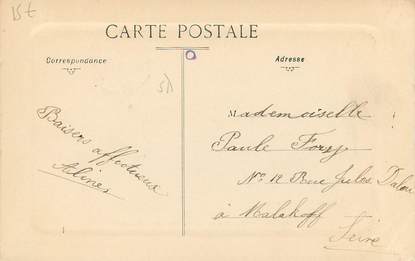 15€
CARTE POSTALE
Correspondance
Adresse
Baisers affectueux
Mademoiselle
Paule
No 12 Rue Jules Dalou
à Malakoff
Seine